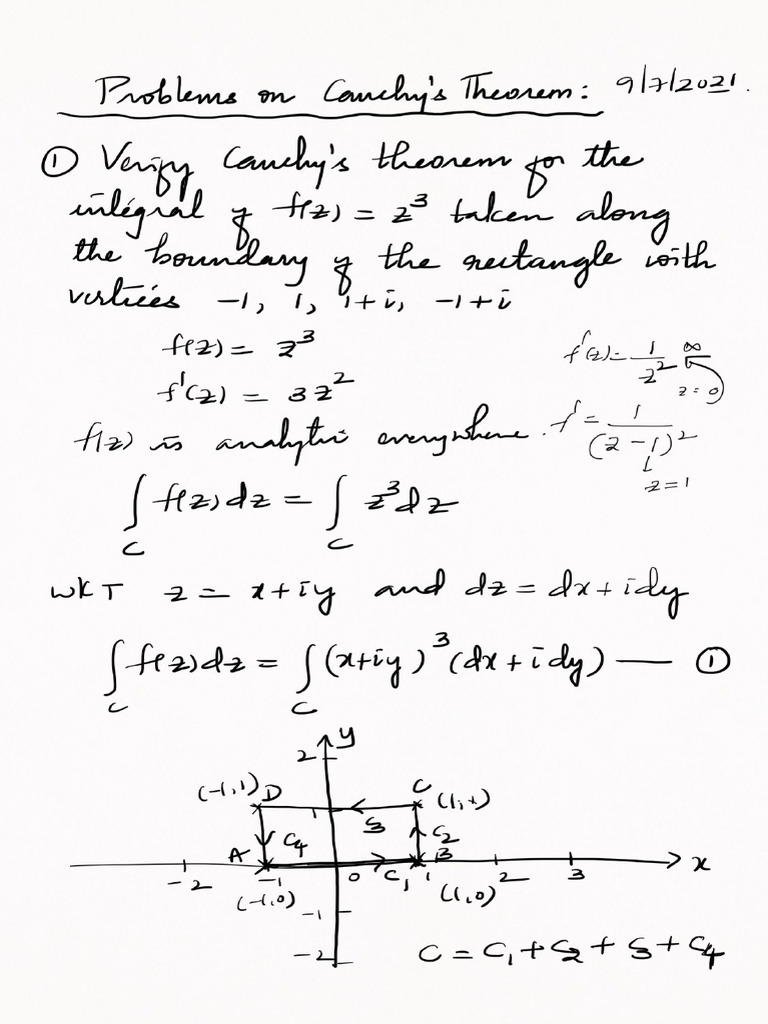 Problems on Cauchy's Theorem: 9/7/2021.
① Verify Cauchy's theorem for the
integral of f(z) = z³ taken along
the boundary of the rectangle with
vertices -1, 1, 1+i, -1+i
f(z) = z³
f'(z) = 3z²
f'(z) = 1/z² ∞
z = 0
f(z) is analytic everywhere.
f' = 1/(z-1)²
z=1
∫_C f(z)dz = ∫_C z³dz
WKT z = x+iy and dz = dx+idy
∫_C f(z)dz = ∫_C (x+iy)³(dx+idy) — ①
y
2
(-1,1) D
C (1,1)
1
C3
C4
C2
A
B
x
-2
-1
0
C1
1
2
3
(-1,0)
(1,0)
-1
-2
C = C1 + C2 + C3 + C4